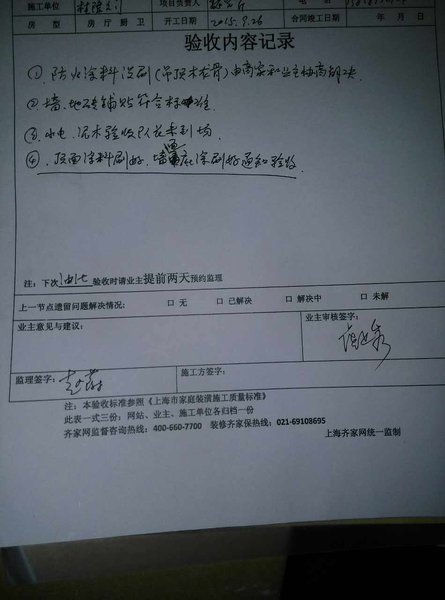 施工单位 项目负责人 电 话
房 型 房 厅 厨 卫 开工日期 2015.9.26 合同竣工日期 年 月 日
验收内容记录
① 防火涂料涂刷(吊顶木龙骨)由商家和业主协商解决
② 墙、地砖铺贴符合标准
③ 水电、泥木验收队长未到场
④ 顶面涂料刷好、墙面底涂刷好通知验收
注:下次油漆验收时请业主提前两天预约监理
上一节点遗留问题解决情况: □ 无 □ 已解决 □ 解决中 □ 未解
业主意见与建议: 业主审核签字:
监理签字: 施工方签字:
注:本验收标准参照《上海市家庭装潢施工质量标准》
此表一式三份:网站、业主、施工单位各归档一份
齐家网监督咨询热线:400-660-7700 装修齐家保热线:021-69108695
上海齐家网统一监制